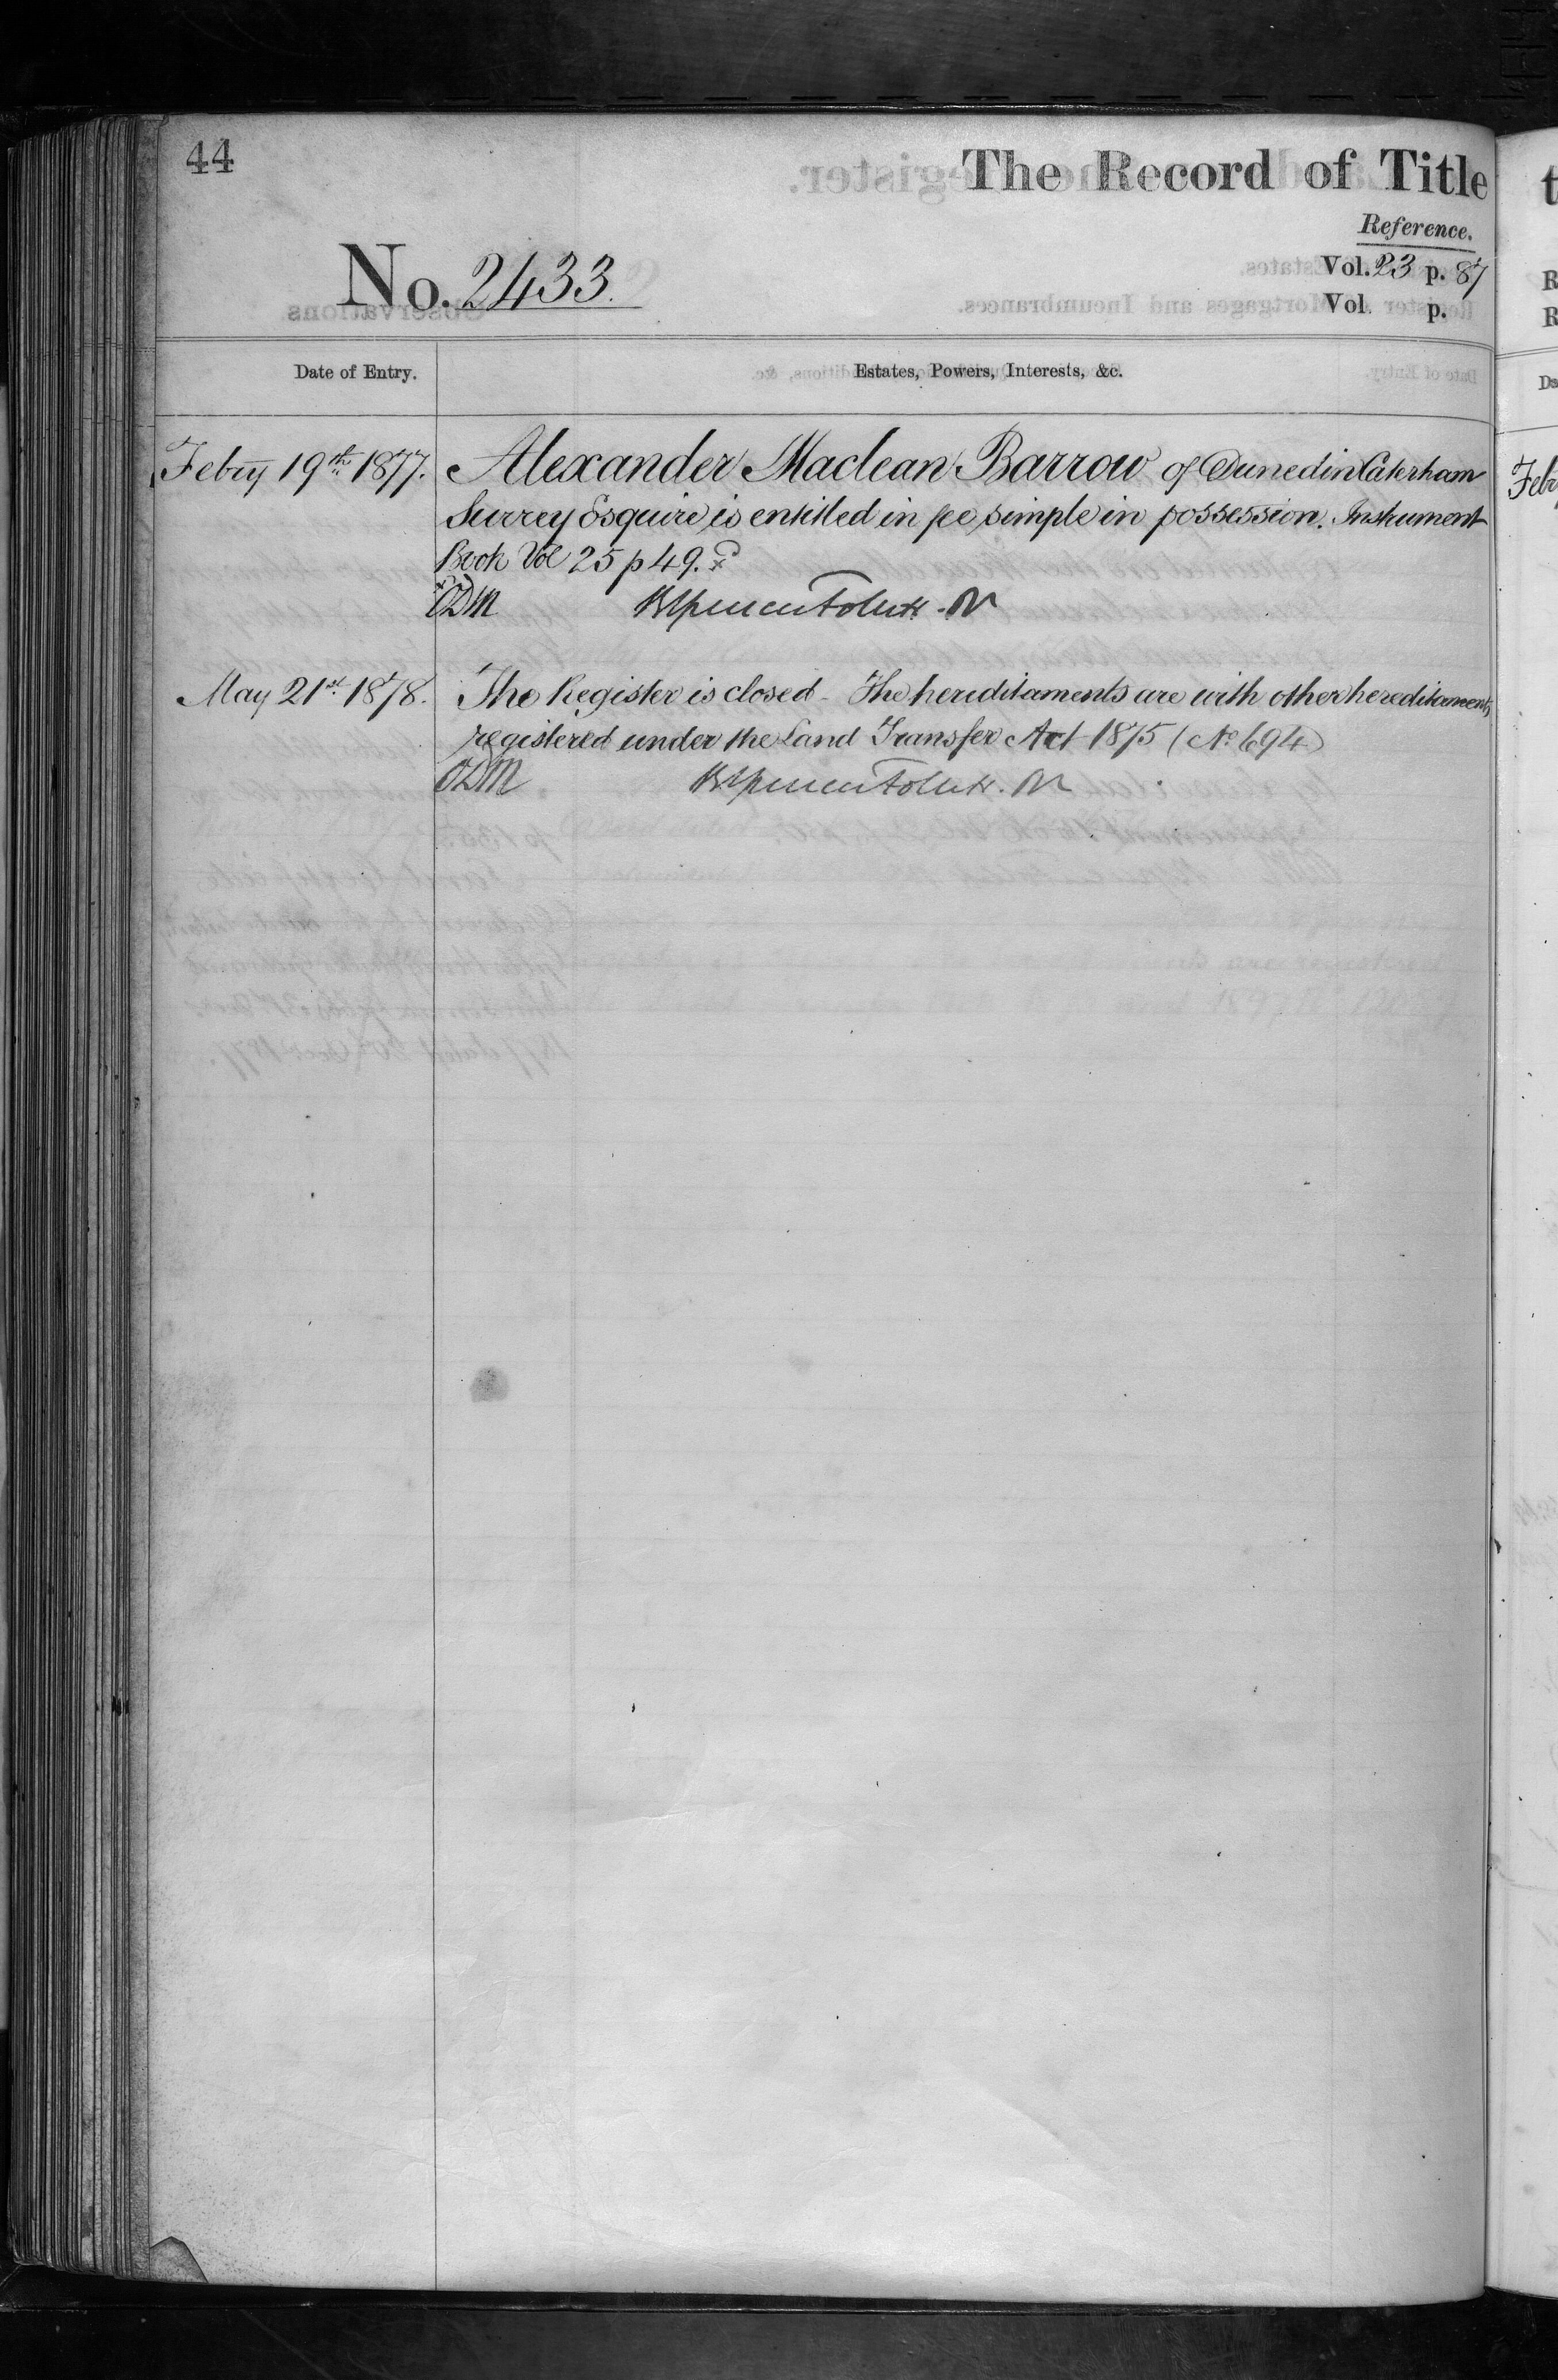 44
The Record of Title
Reference.
No. 2433.
Vol. 23 p. 87
Vol. p.
Date of Entry.
Estates, Powers, Interests, &c.
Febry 19th 1877.
Alexander Maclean Barrow of Dunedin Caterham
Surrey Esquire is entitled in fee simple in possession. Instrument
Book Vol 25 p 49.
May 21st 1878.
The Register is closed - The hereditaments are with other hereditaments
registered under the Land Transfer Act 1875 (No 694)